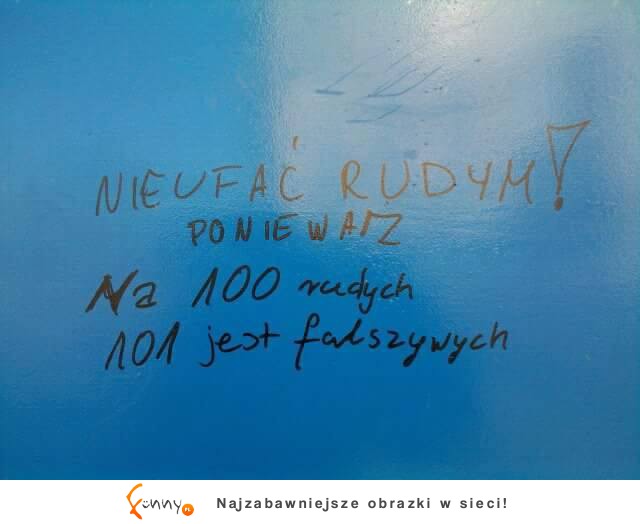 NIEUFAĆ RUDYM!
PONIEWARZ
Na 100 rudych
101 jest fałszywych
Funny.PL
Najzabawniejsze obrazki w sieci!